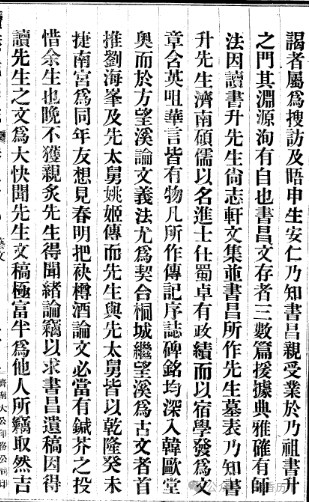 謁者屬爲搜訪及晤申生安仁乃知書昌親受業於乃祖書升
之門其淵源洵有自也書昌文存者三數篇援據典雅確有師
法因讀書升先生尙志軒文集並書昌所作先生墓表乃知書
升先生濟南碩儒以名進士仕蜀卓有政績而以宿學發爲文
章含英咀華言皆有物凡所作傳記序誌碑銘均深入韓歐堂
奧而於方望溪論文義法尤爲契合桐城繼望溪爲古文者首
推劉海峯及先太舅姚姬傳而先生與先太舅皆以乾隆癸未
捷南宮爲同年友想見春明把袂樽酒論文必當有鍼芥之投
惜余生也晚不獲親炙先生得聞緒論竊以求書昌遺稿因得
讀先生之文爲大快聞先生文稿極富半爲他人所竊取然吉
藝文
濟南大公印務公司印